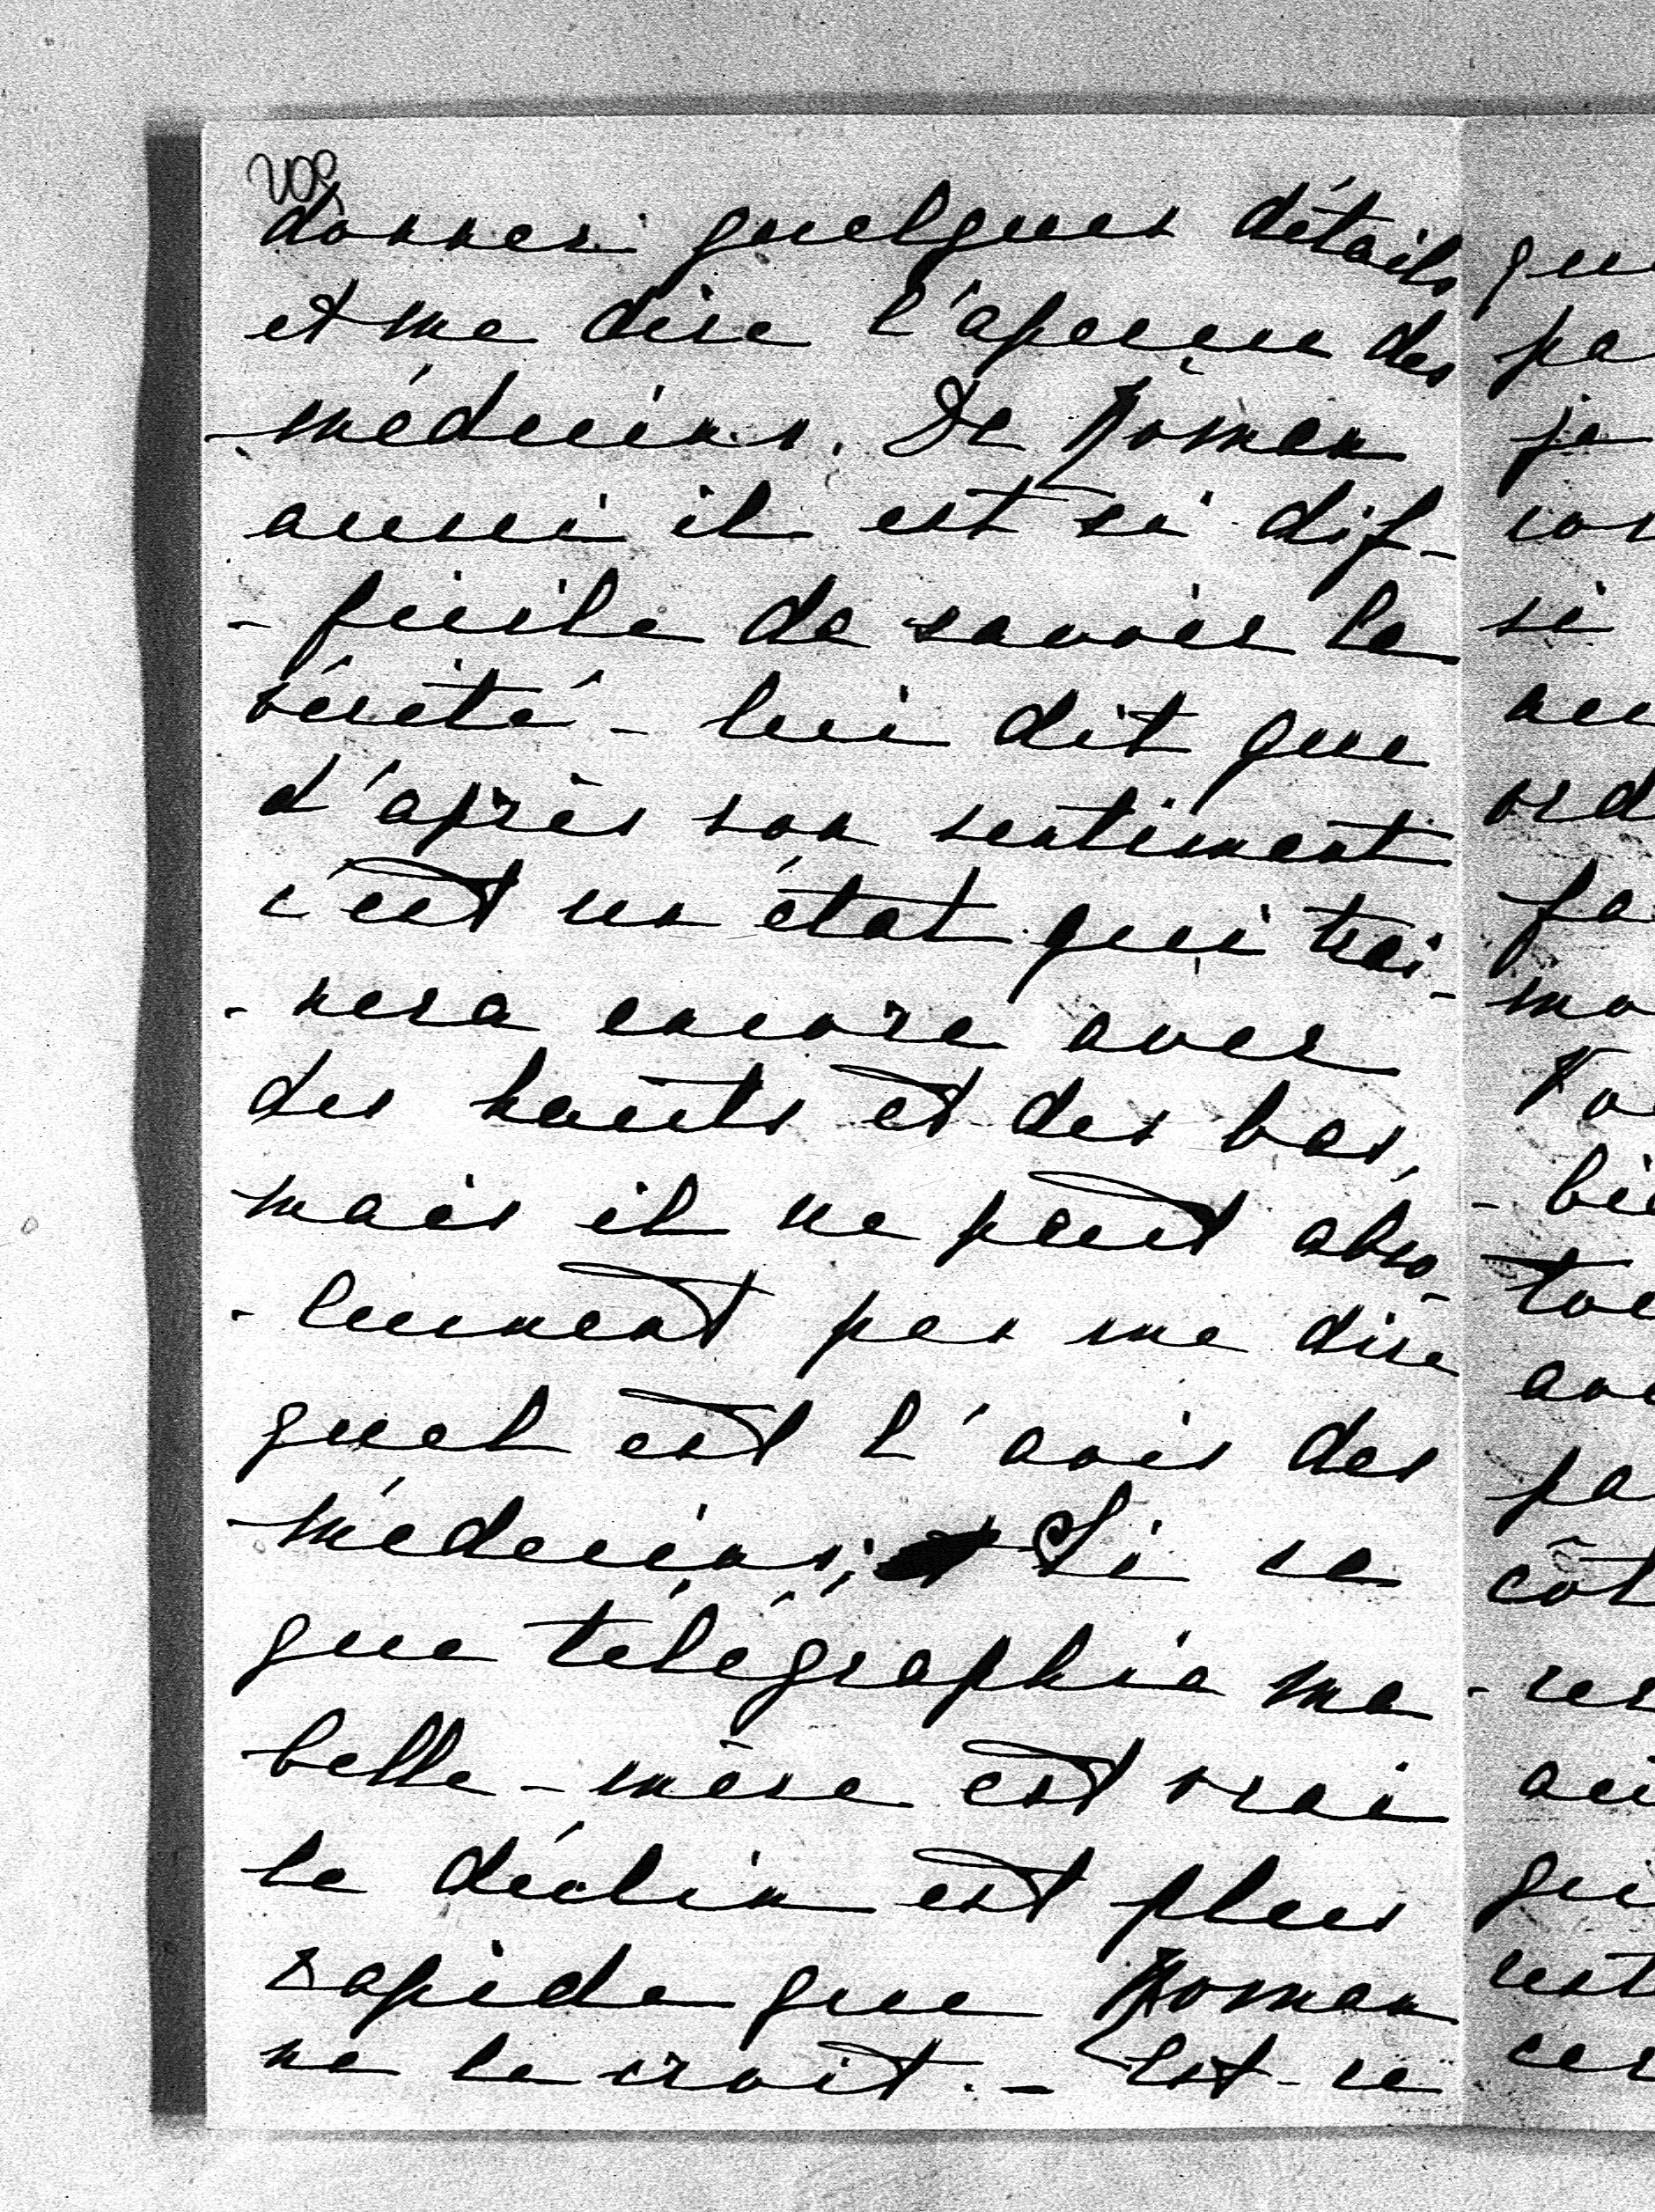 208
donner quelques détails
et me dire l'aperçu des
médecins. De Roman
aussi il est si dif-
-ficile de savoir la
vérité - lui dit que
d'après son sentiment
c'est un état qui traî-
-nera encore avec
des hauts et des bas,
mais il ne peut abso-
-lument pas me dire
quel est l'avis des
médecins; Si ce
que télégraphie ma
belle-mère est vrai
le déclin est plus
rapide que Roman
ne le croit. - Est-ce